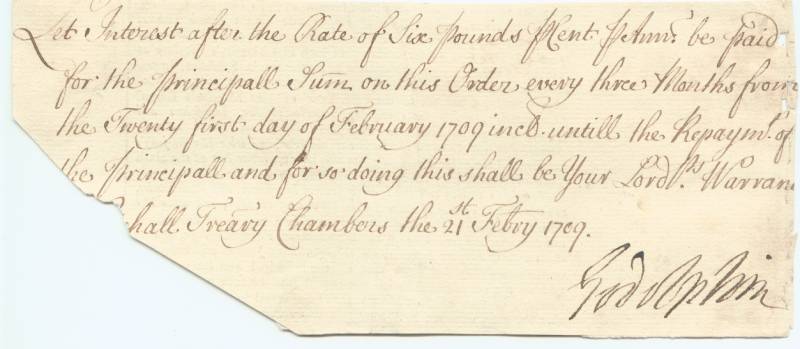 Let Interest after the Rate of Six Pounds ⅌Cent ⅌Annm. be paid
for the Principall Sum̄ on this Order every three Months from
the Twenty first day of February 1709 incl. untill the Repaymt. of
the Principall and for so doing this shall be Your Lordps. Warran
hall Treāry Chambers the 21st Febry 1709.
Godolphin